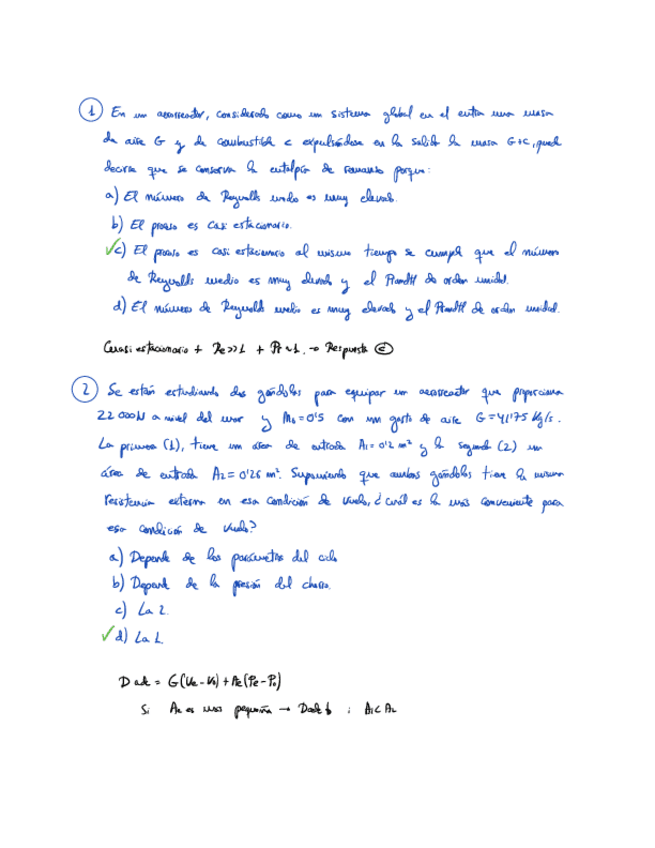 1 En un aerorreactor, considerado como un sistema global en el entra una masa
de aire G y de combustible c expulsándose en la salida la masa G+c, puede
decirse que se conserva la entalpía de remanso porque:
a) El número de Reynolds medio es muy elevado.
b) El proceso es casi estacionario.
✓c) El proceso es casi estacionario al mismo tiempo se cumple que el número
de Reynolds medio es muy elevado y el Prandtl de orden unidad.
d) El número de Reynolds medio es muy elevado y el Prandtl de orden unidad.
Cuasiestacionario + Re>>1 + Pr~1. → Respuesta c
2 Se están estudiando dos góndolas para equipar un aerorreactor que proporciona
22 000N a nivel del mar y M₀=0'5 con un gasto de aire G=41'75 Kg/s.
La primera (1), tiene un área de entrada A₁=0'2 m² y la segunda (2) un
área de entrada A₂=0'26 m². Suponiendo que ambas góndolas tienen la misma
resistencia externa en esa condición de vuelo, ¿cuál es la más conveniente para
esa condición de vuelo?
a) Depende de los parámetros del ciclo
b) Depende de la presión del chorro.
c) La 2.
✓d) La 1.
D adc = G(Ve-V₀)+Ae(Pe-P₀)
Si es más pequeña → Dadc ↓ ; A₁<A₂